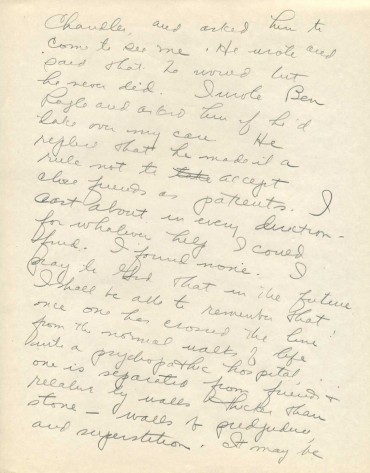 Chandler, and asked him to
come to see me. He wrote and
said that he would but
he never did. I wrote Ben
and asked him if he'd
take over my case He
replied that he made it a
rule not to take accept
close friends as patients. I
cast about in every direction -
for whatever help I could
find. I found none. I
pray to God that in the future
I shall be able to remember that
once one has crossed the line
from the normal walks of life
into a psychopathic hospital
one is separated from friends &
relatives by walls thicker than
stone - walls of prejudice
and superstition. It may be